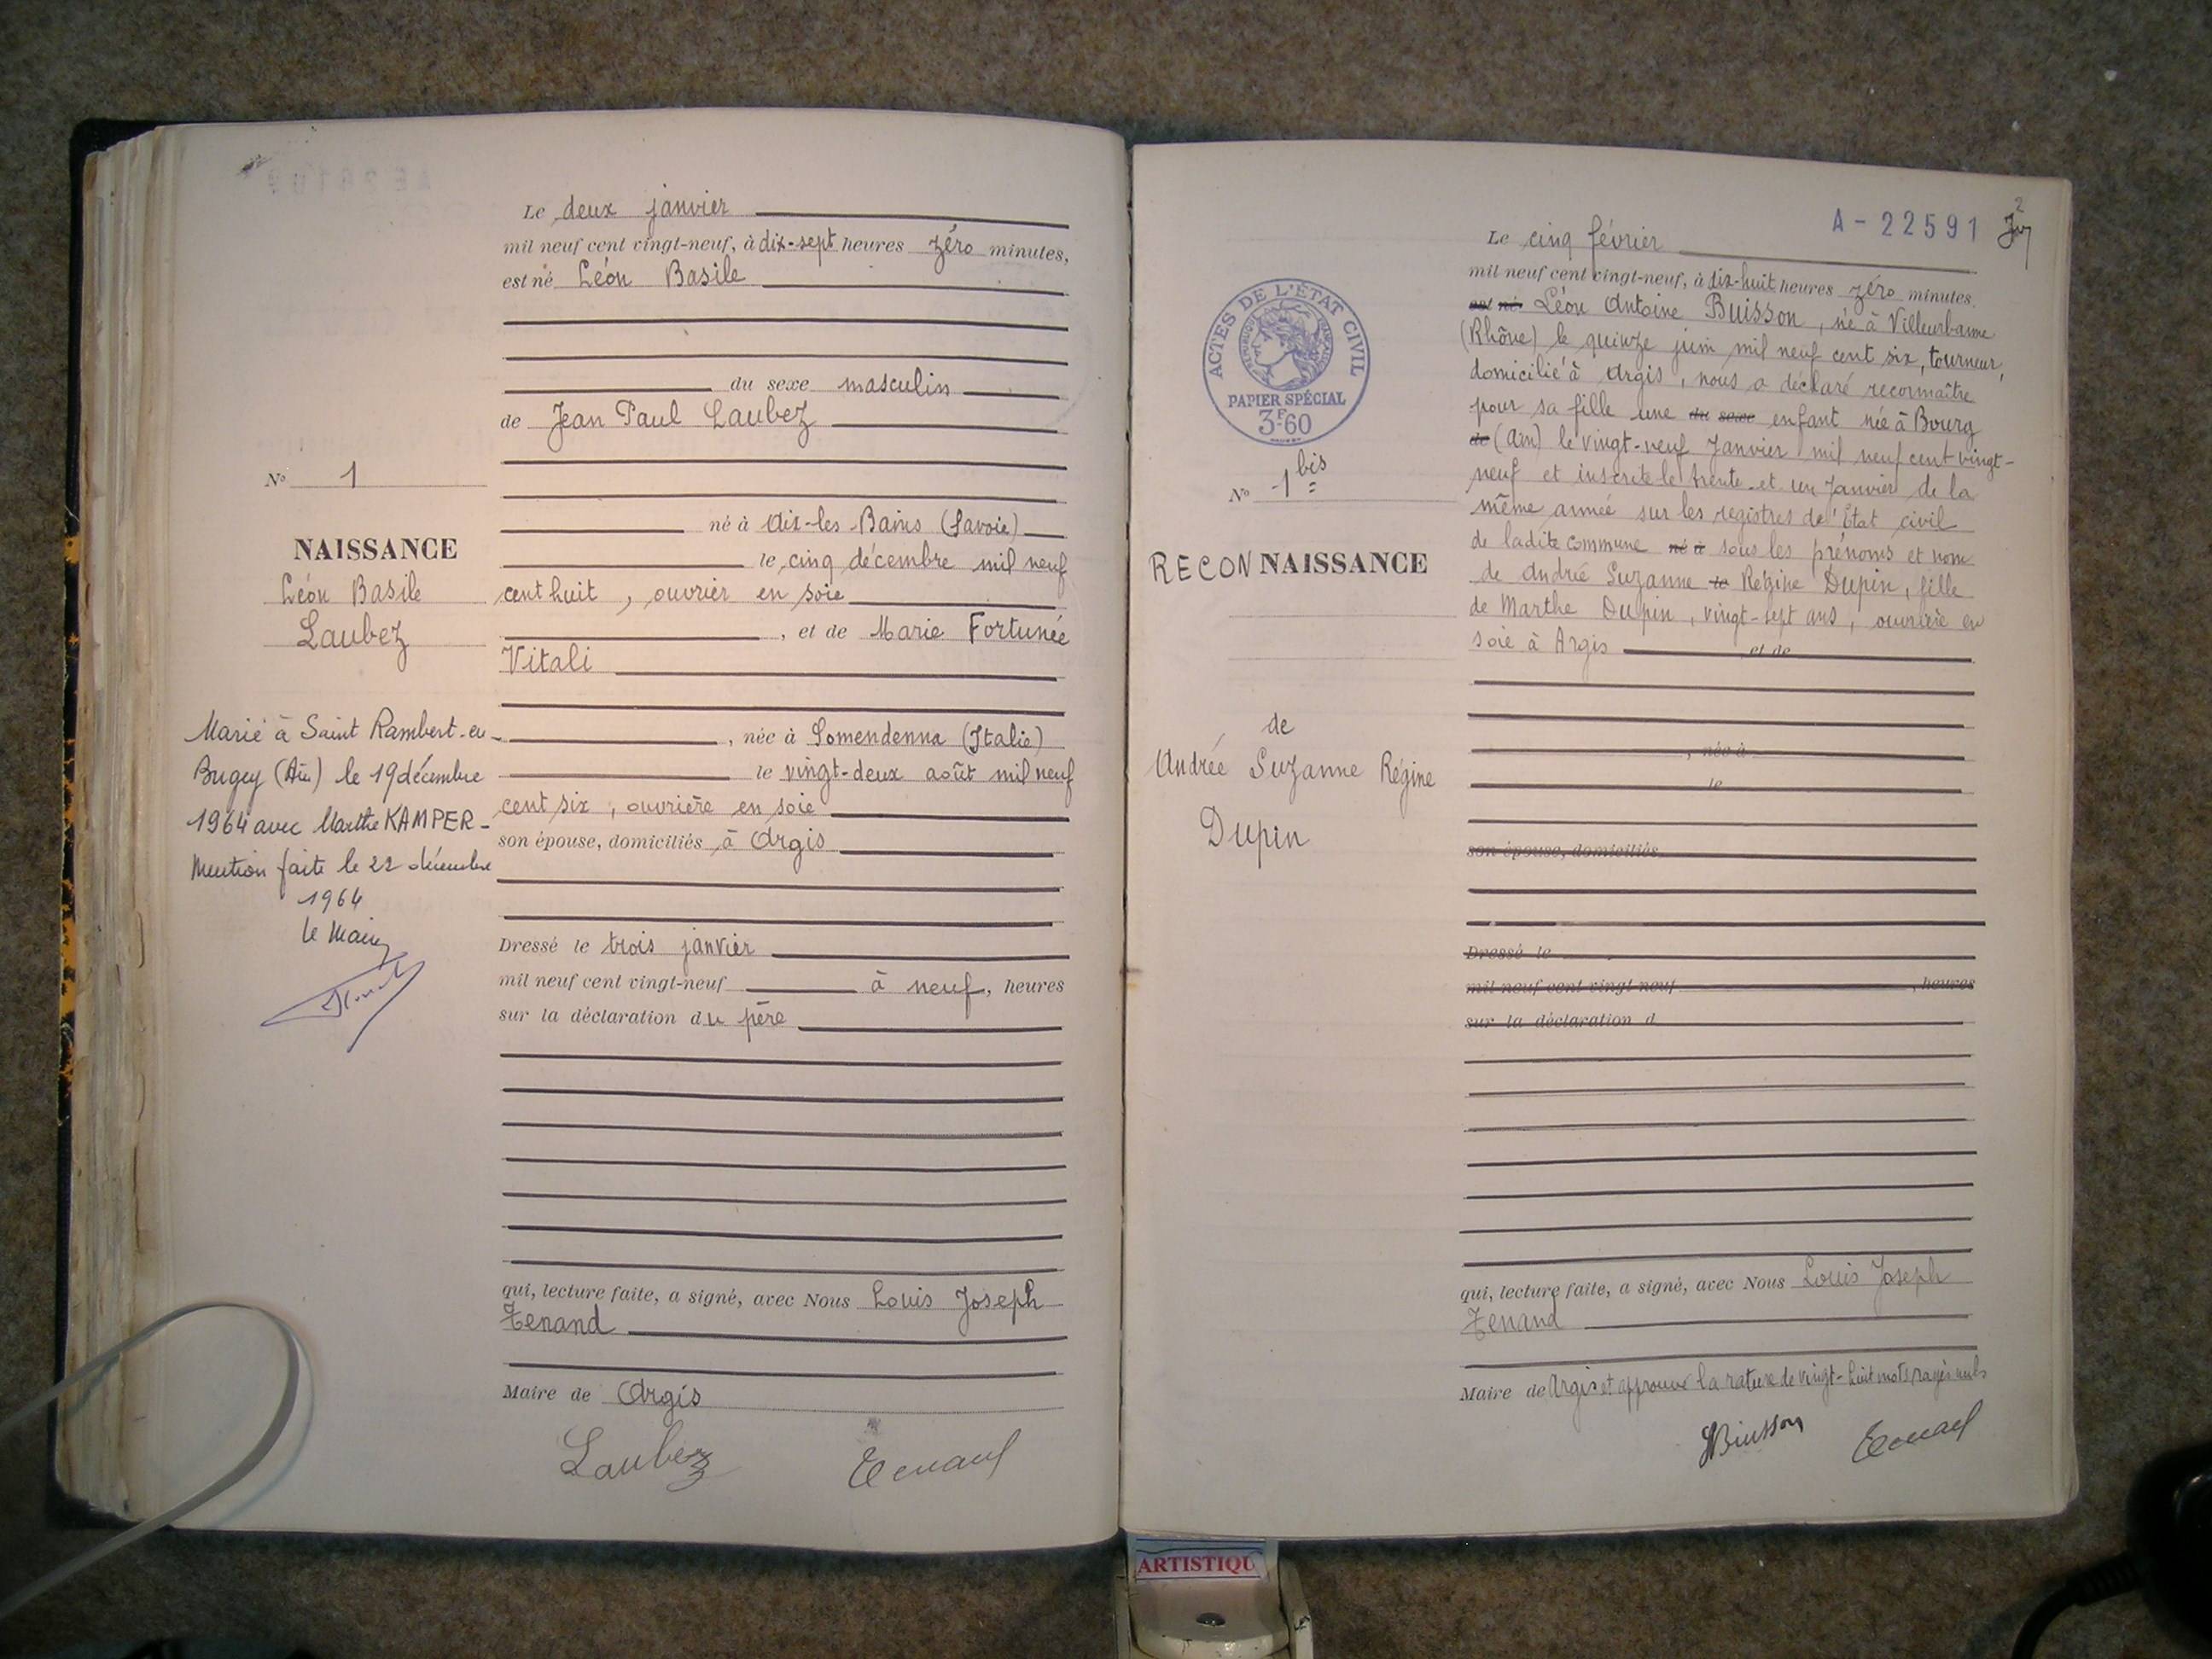 Le deux janvier
mil neuf cent vingt-neuf, à dix-sept heures zéro minutes,
est né Léon Basile
du sexe masculin
de Jean Paul Laubez
né à Aix-les-Bains (Savoie)
le cinq décembre mil neuf
cent huit, ouvrier en soie
, et de Marie Fortunée
Vitali
, née à Somendenna (Italie)
le vingt-deux août mil neuf
cent six, ouvrière en soie
son épouse, domiciliés à Argis
Dressé le trois janvier
mil neuf cent vingt-neuf à neuf, heures
sur la déclaration du père
qui, lecture faite, a signé, avec Nous Louis Joseph
Tenand
Maire de Argis
Laubez Tenand
No 1
NAISSANCE
Léon Basile
Laubez
Marié à Saint Rambert-en-
Bugey (Ain) le 19 décembre
1964 avec Marthe KAMPER-
Mention faite le 22 décembre
1964
le Maire
A-22591
2
Le cinq février
mil neuf cent vingt-neuf, à dix-huit heures zéro minutes
est né Léon Antoine Buisson, né à Villeurbanne
(Rhône) le quinze juin mil neuf cent six, tourneur,
domicilié à Argis, nous a déclaré reconnaître
pour sa fille une du sexe enfant née à Bourg
de (Ain) le vingt-neuf Janvier mil neuf cent vingt-
neuf et inscrite le trente-et un Janvier de la
même année sur les registres de l'Etat civil
de ladite commune né à sous les prénoms et nom
de Andrée Suzanne le Régine Dupin, fille
de Marthe Dupin, vingt-sept ans, ouvrière en
soie à Argis et de
, née à
le
son épouse, domiciliés
Dressé le
mil neuf cent vingt-neuf , heures
sur la déclaration d
qui, lecture faite, a signé, avec Nous Louis Joseph
Tenand
Maire de Argis et approuvé la rature de vingt-huit mots rayés nuls
Buisson Tenand
ACTES DE L'ÉTAT CIVIL
RÉPUBLIQUE FRANÇAISE
PAPIER SPÉCIAL
3F60
No 1 bis
RECONNAISSANCE
de
Andrée Suzanne Régine
Dupin
ARTISTIQU